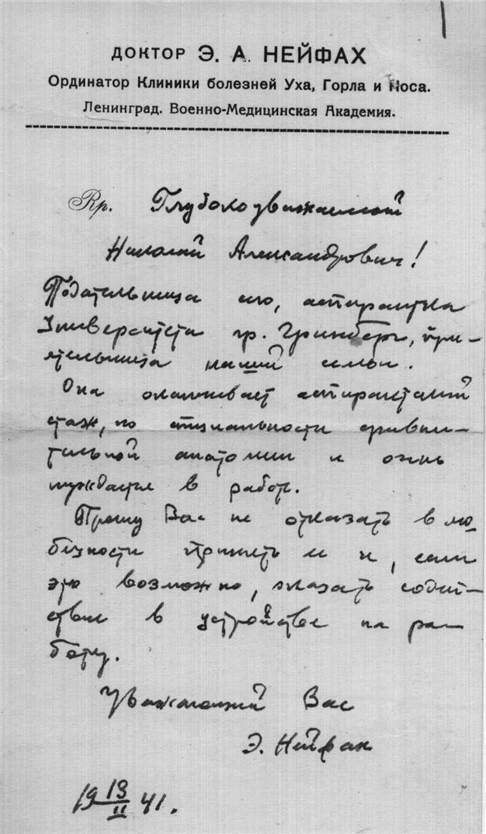 ДОКТОР Э. А. НЕЙФАХ
Ординатор Клиники болезней Уха, Горла и Носа.
Ленинград. Военно-Медицинская Академия.
Rp. Глубокоуважаемый
Николай Александрович!
Подательница сего, аспирантка
Университета гр. Гринберг, при-
ятельница нашей семьи.
Она оканчивает аспирантский
стаж, по специальности сравни-
тельной анатомии и очень
нуждается в работе.
Прошу Вас не отказать в лю-
безности принять ее и, если
это возможно, оказать содей-
ствие в устройстве на ра-
боту.
Уважающий Вас
Э. Нейфах
19 13/II 41.